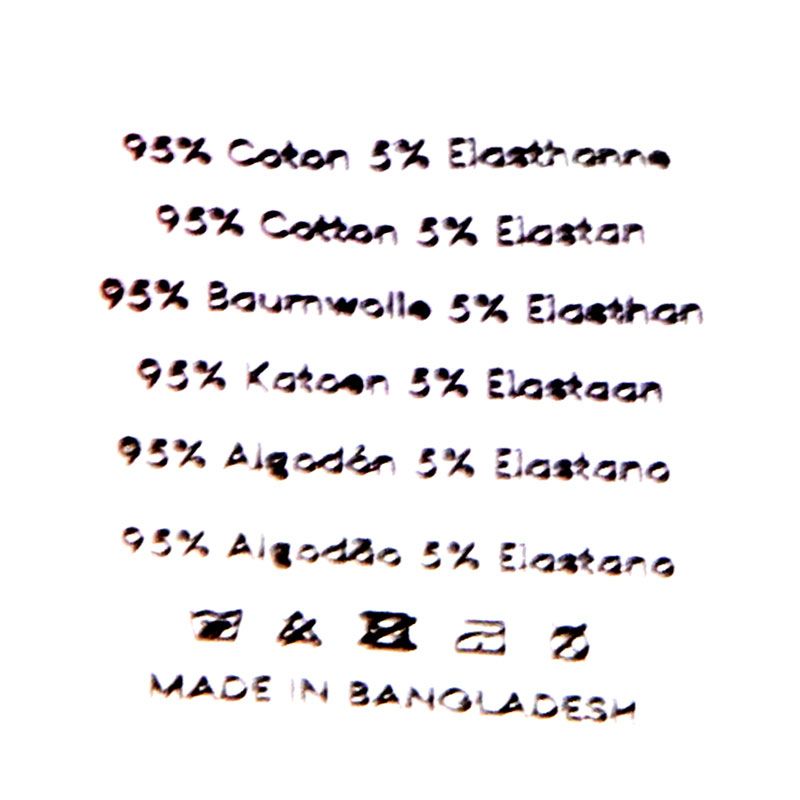 95% Coton 5% Elasthanne
95% Cotton 5% Elastan
95% Baumwolle 5% Elasthan
95% Katoen 5% Elastaan
95% Algodón 5% Elastano
95% Algodão 5% Elastano
MADE IN BANGLADESH